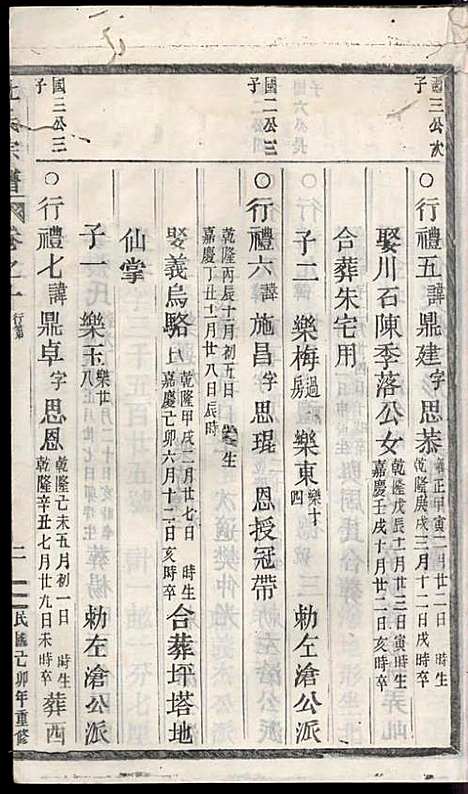 國三公次子
○行禮五諱鼎建字思恭雍正甲寅二月廿二日 時生
乾隆庚戌三月十二日戌時卒
娶川石陳季落公女乾隆戊辰十二月廿三日寅時生
嘉慶壬戌十月廿二日亥時卒
合葬朱宅用
子二 樂梅過房 樂東樂十四 勅左滄公派
國二公三子
○行禮六諱施昌字思琨 恩授冠帶
乾隆丙辰十二月初五日 時生
嘉慶丁丑十二月廿八日辰時卒
娶義烏駱氏乾隆甲戌二月廿七日 時生
嘉慶己卯六月十二日亥時卒
合葬坪塔地
仙掌
子一 樂玉樂廿八 勅左滄公派
國三公三子
○行禮七諱鼎卓字思恩乾隆己未五月初一日 時生
乾隆辛丑七月廿九日未時卒
葬西
宗譜 卷之十 行第 二 民國己卯年重修